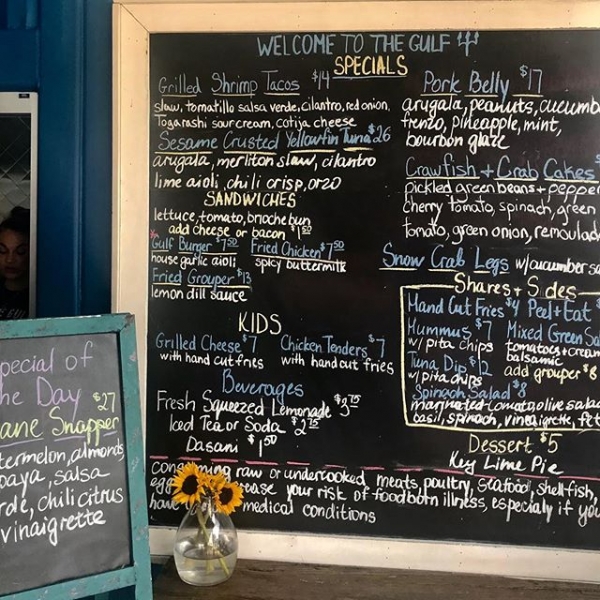 WELCOME TO THE GULF
SPECIALS
Grilled Shrimp Tacos $14
slaw, tomatillo salsa verde, cilantro, red onion,
Togarashi sour cream, cotija cheese
Sesame Crusted Yellowfin Tuna $26
arugula, merliton slaw, cilantro
lime aioli, chili crisp, orzo
SANDWICHES
lettuce, tomato, brioche bun
add cheese or bacon $1 50
Gulf Burger $7 50
house garlic aioli
Fried Chicken $7 50
spicy buttermilk
Fried Grouper $13
lemon dill sauce
KIDS
Grilled Cheese $7
with hand cut fries
Chicken Tenders $7
with hand cut fries
Beverages
Fresh Squeezed Lemonade $3 75
Iced Tea or Soda $2 75
Dasani $1 50
Pork Belly $17
arugula, peanuts, cucumb
pineapple, mint,
bourbon glaze
Crawfish + Crab Cakes $
pickled green beans + pepper
cherry tomato, spinach, green
tomato, green onion, remoulad
Snow Crab Legs w/cucumber sa
Shares + Sides
Hand Cut Fries $4
Peel + Eat $
Hummus $7
w/ pita chips
Mixed Green Sal
tomatoes + cream
balsamic
add grouper $8
Tuna Dip $12
w/ pita chips
Spinach Salad $8
marinated tomato, olive salad
basil, spinach, vinaigrette, fet
Dessert $5
Key Lime Pie
consuming raw or undercooked meats, poultry, seafood, shellfish,
egg ease your risk of foodborn illness, especially if you
have medical conditions
pecial of
he Day
$27
ane Snapper
termelon, almonds
paya, salsa
rde, chili citrus
vinaigrette